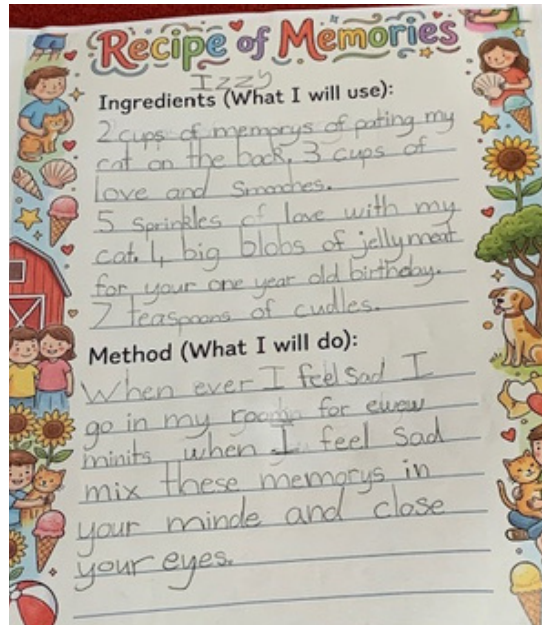 Recipe of Memories
Izzy
Ingredients (What I will use):
2 cups of memorys of pating my
cat on the back. 3 cups of
love and Smooches.
5 sprinkles of love with my
cat. 4 big blobs of jellymeat
for your one year old birthday.
7 teaspoons of cudles.
Method (What I will do):
When ever I feel sad I
go in my room for
minits when I feel sad
mix these memorys in
your minde and close
your eyes.